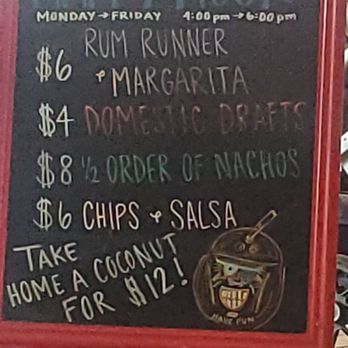 MONDAY → FRIDAY 4:00pm → 6:00pm
$6 RUM RUNNER
+ MARGARITA
$4 DOMESTIC DRAFTS
$8 ½ ORDER OF NACHOS
$6 CHIPS + SALSA
TAKE
HOME A COCONUT
FOR $12!
HAVE FUN